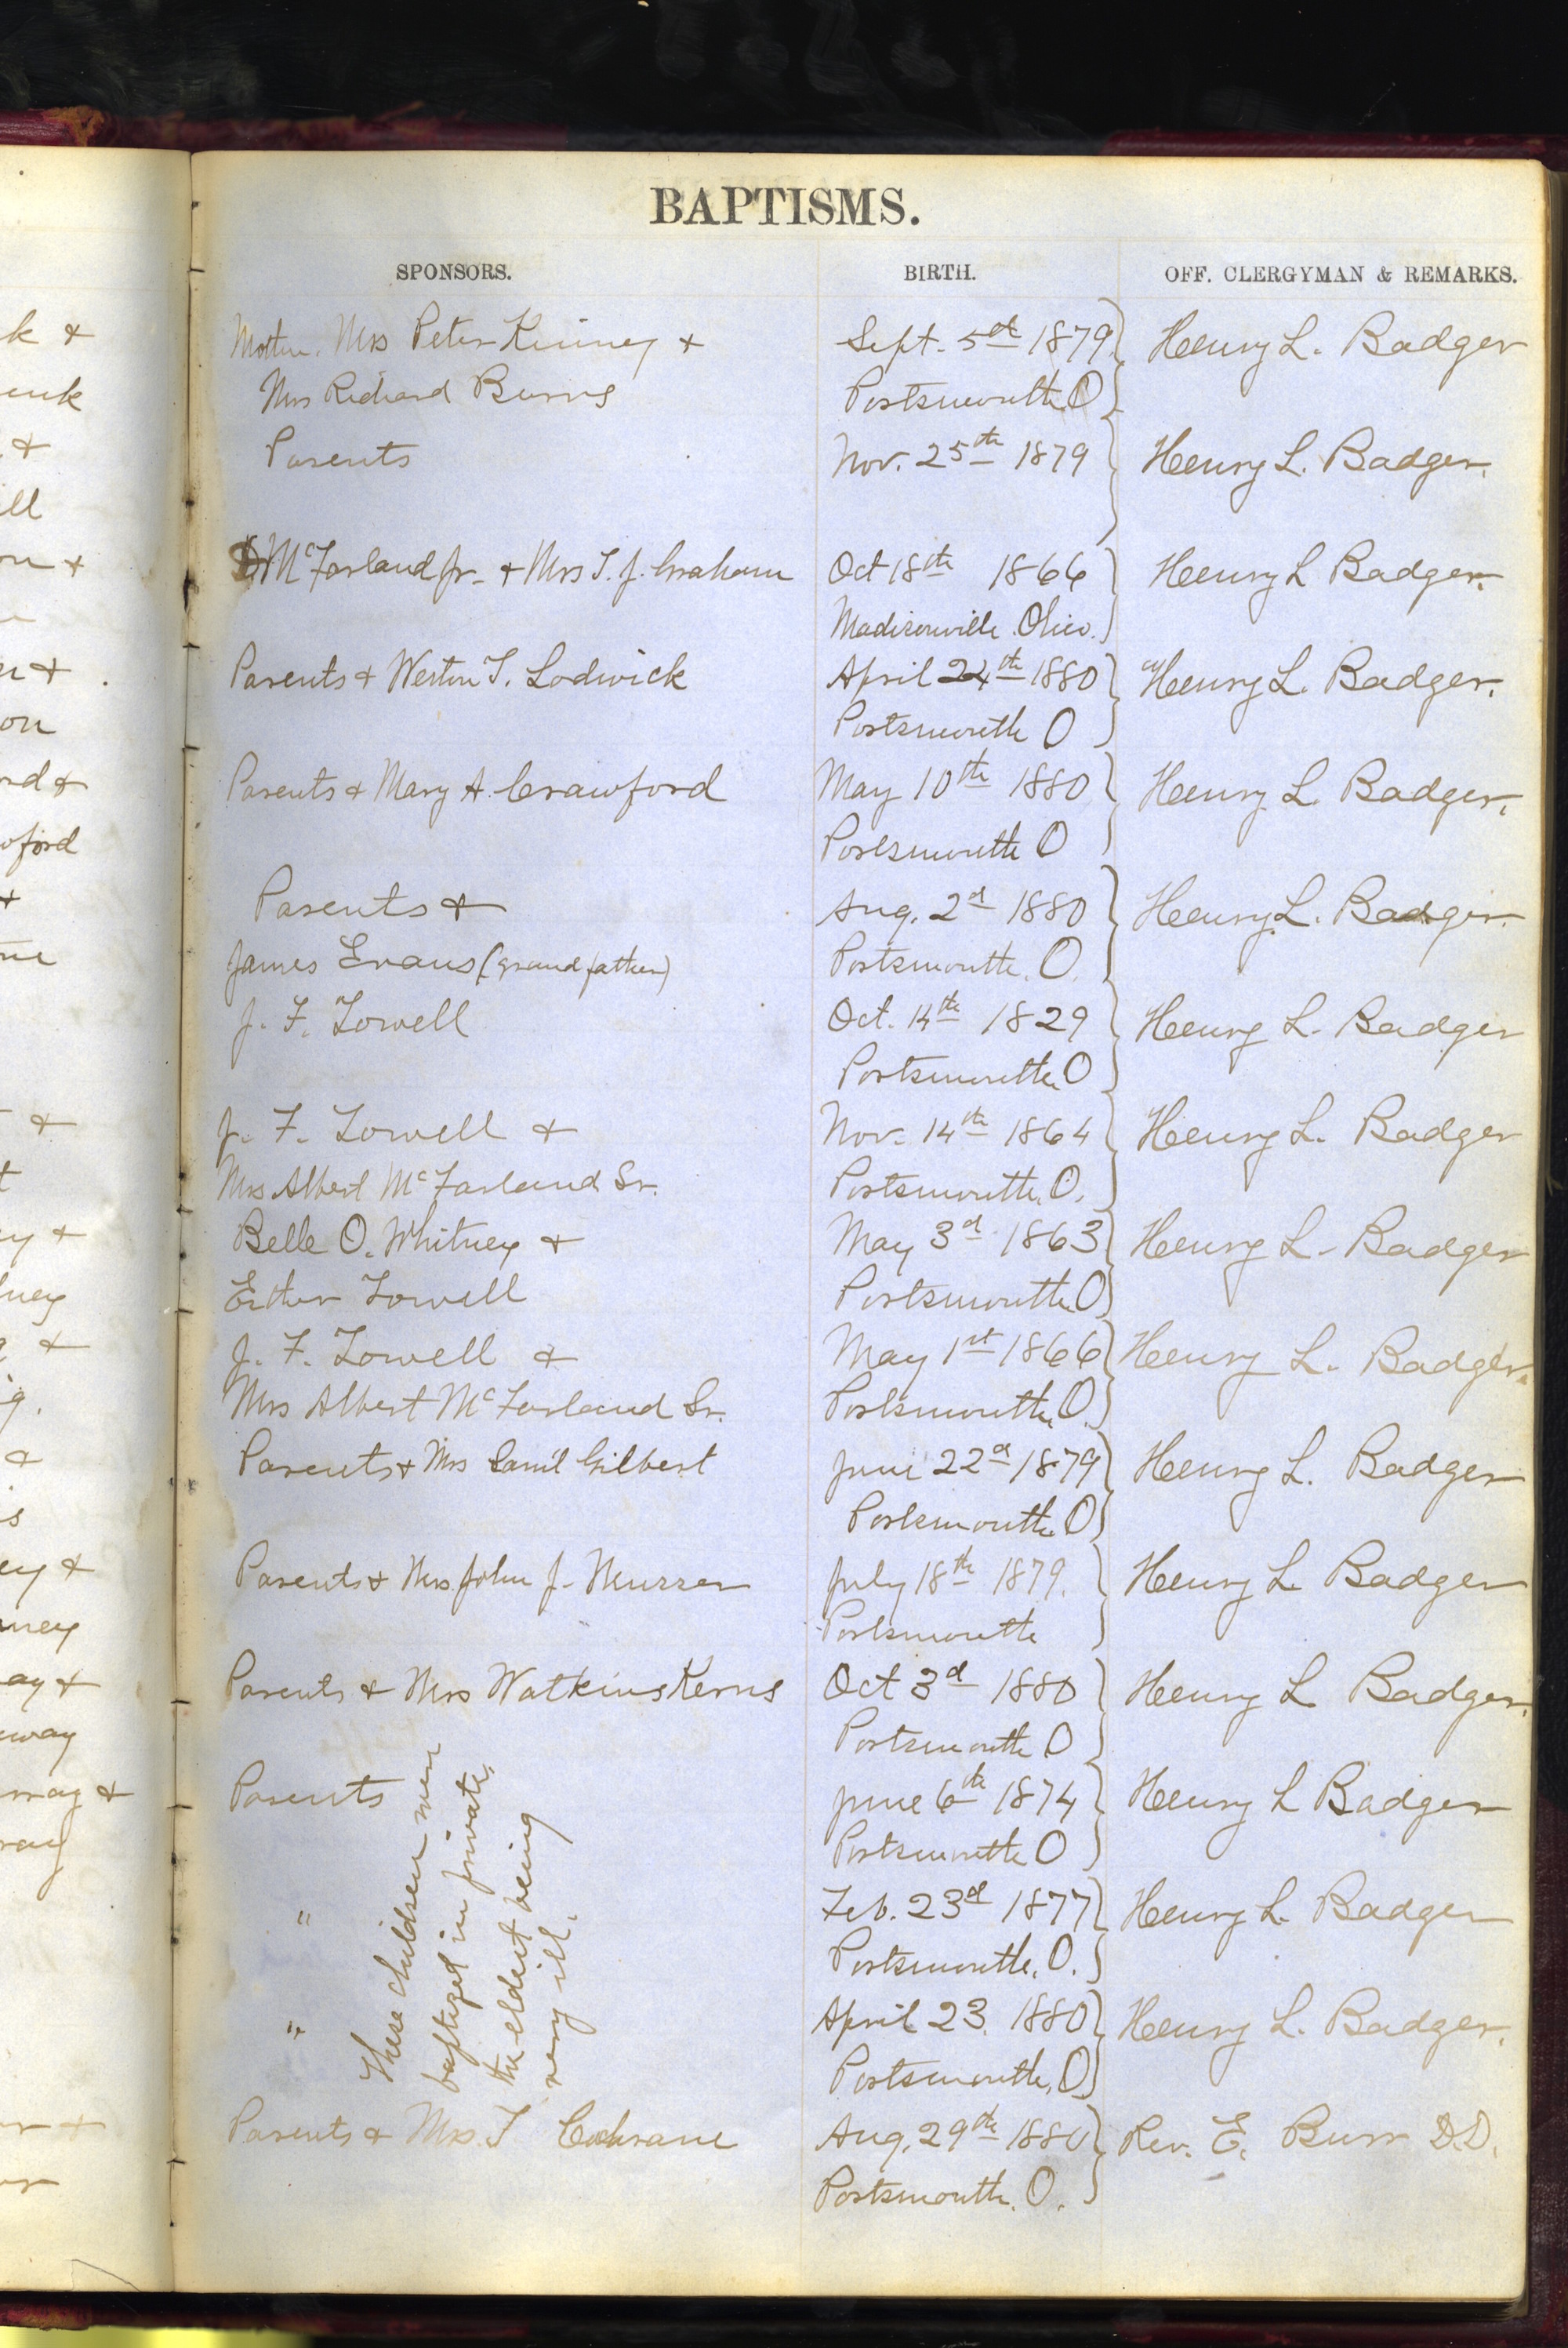 BAPTISMS.
SPONSORS. BIRTH. OFF. CLERGYMAN & REMARKS.
Mother. Mrs Peter Kinney + Sept. 5th 1879 Henry L. Badger
Mrs Richard Burns Portsmouth O
Parents Nov. 25th 1879 Henry L. Badger.
McFarland Jr. + Mrs T. J. Graham Oct 18th 1866 Henry L Badger.
Madisonville Ohio.
Parents + T. Lodwick April 24th 1880 Henry L. Badger.
Portsmouth O
Parents + Mary A. Crawford May 10th 1880 Henry L. Badger.
Portsmouth O
Parents + Aug. 2d 1880 Henry L. Badger.
James Evans (grandfather) Portsmouth. O.
J. F. Towell Oct. 14th 1829 Henry L. Badger
Portsmouth. O
J. F. Towell + Nov. 14th 1864 Henry L. Badger
Mrs Albert McFarland Sr. Portsmouth. O.
Belle O. Whitney + May 3d 1863 Henry L. Badger
Esther Towell Portsmouth. O
J. F. Towell + May 1st 1866 Henry L. Badger.
Mrs Albert McFarland Sr. Portsmouth, O.
Parents + Mrs Gilbert June 22d 1879 Henry L. Badger
Portsmouth. O
Parents + Mrs John J. July 18th 1879. Henry L. Badger
Portsmouth
Parents + Mrs Watkins Kerns Oct 3d 1880 Henry L Badger.
Portsmouth O
Parents June 6th 1874 Henry L Badger
Portsmouth O
" Feb. 23d 1877 Henry L. Badger
Portsmouth. O.
" April 23. 1880 Henry L. Badger.
Portsmouth, O
These children were
baptized in private,
the eldest being
very ill.
Parents + Mrs. T Cochrane Aug. 29th 1880 Rev. E. Burr D.D.
Portsmouth. O.